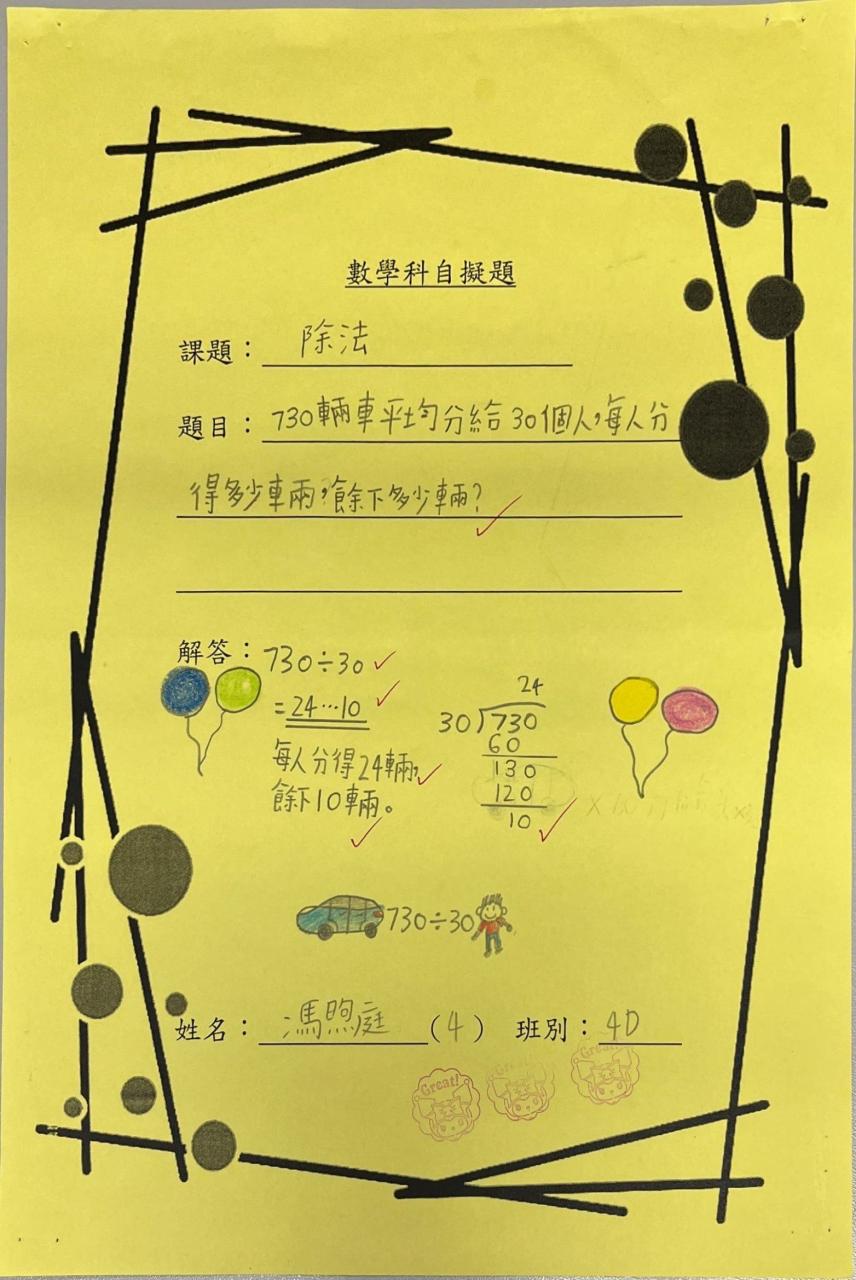 數學科自擬題
課題：除法
題目：730輛車平均分給30個人，每人分
得多少車兩，餘下多少車輛？
解答：730÷30
=24…10
每人分得24輛，
餘下10輛。
24
30)730
60
130
120
10
730÷30
姓名：馮煦庭(4) 班別：4D
Great! Great! Great!